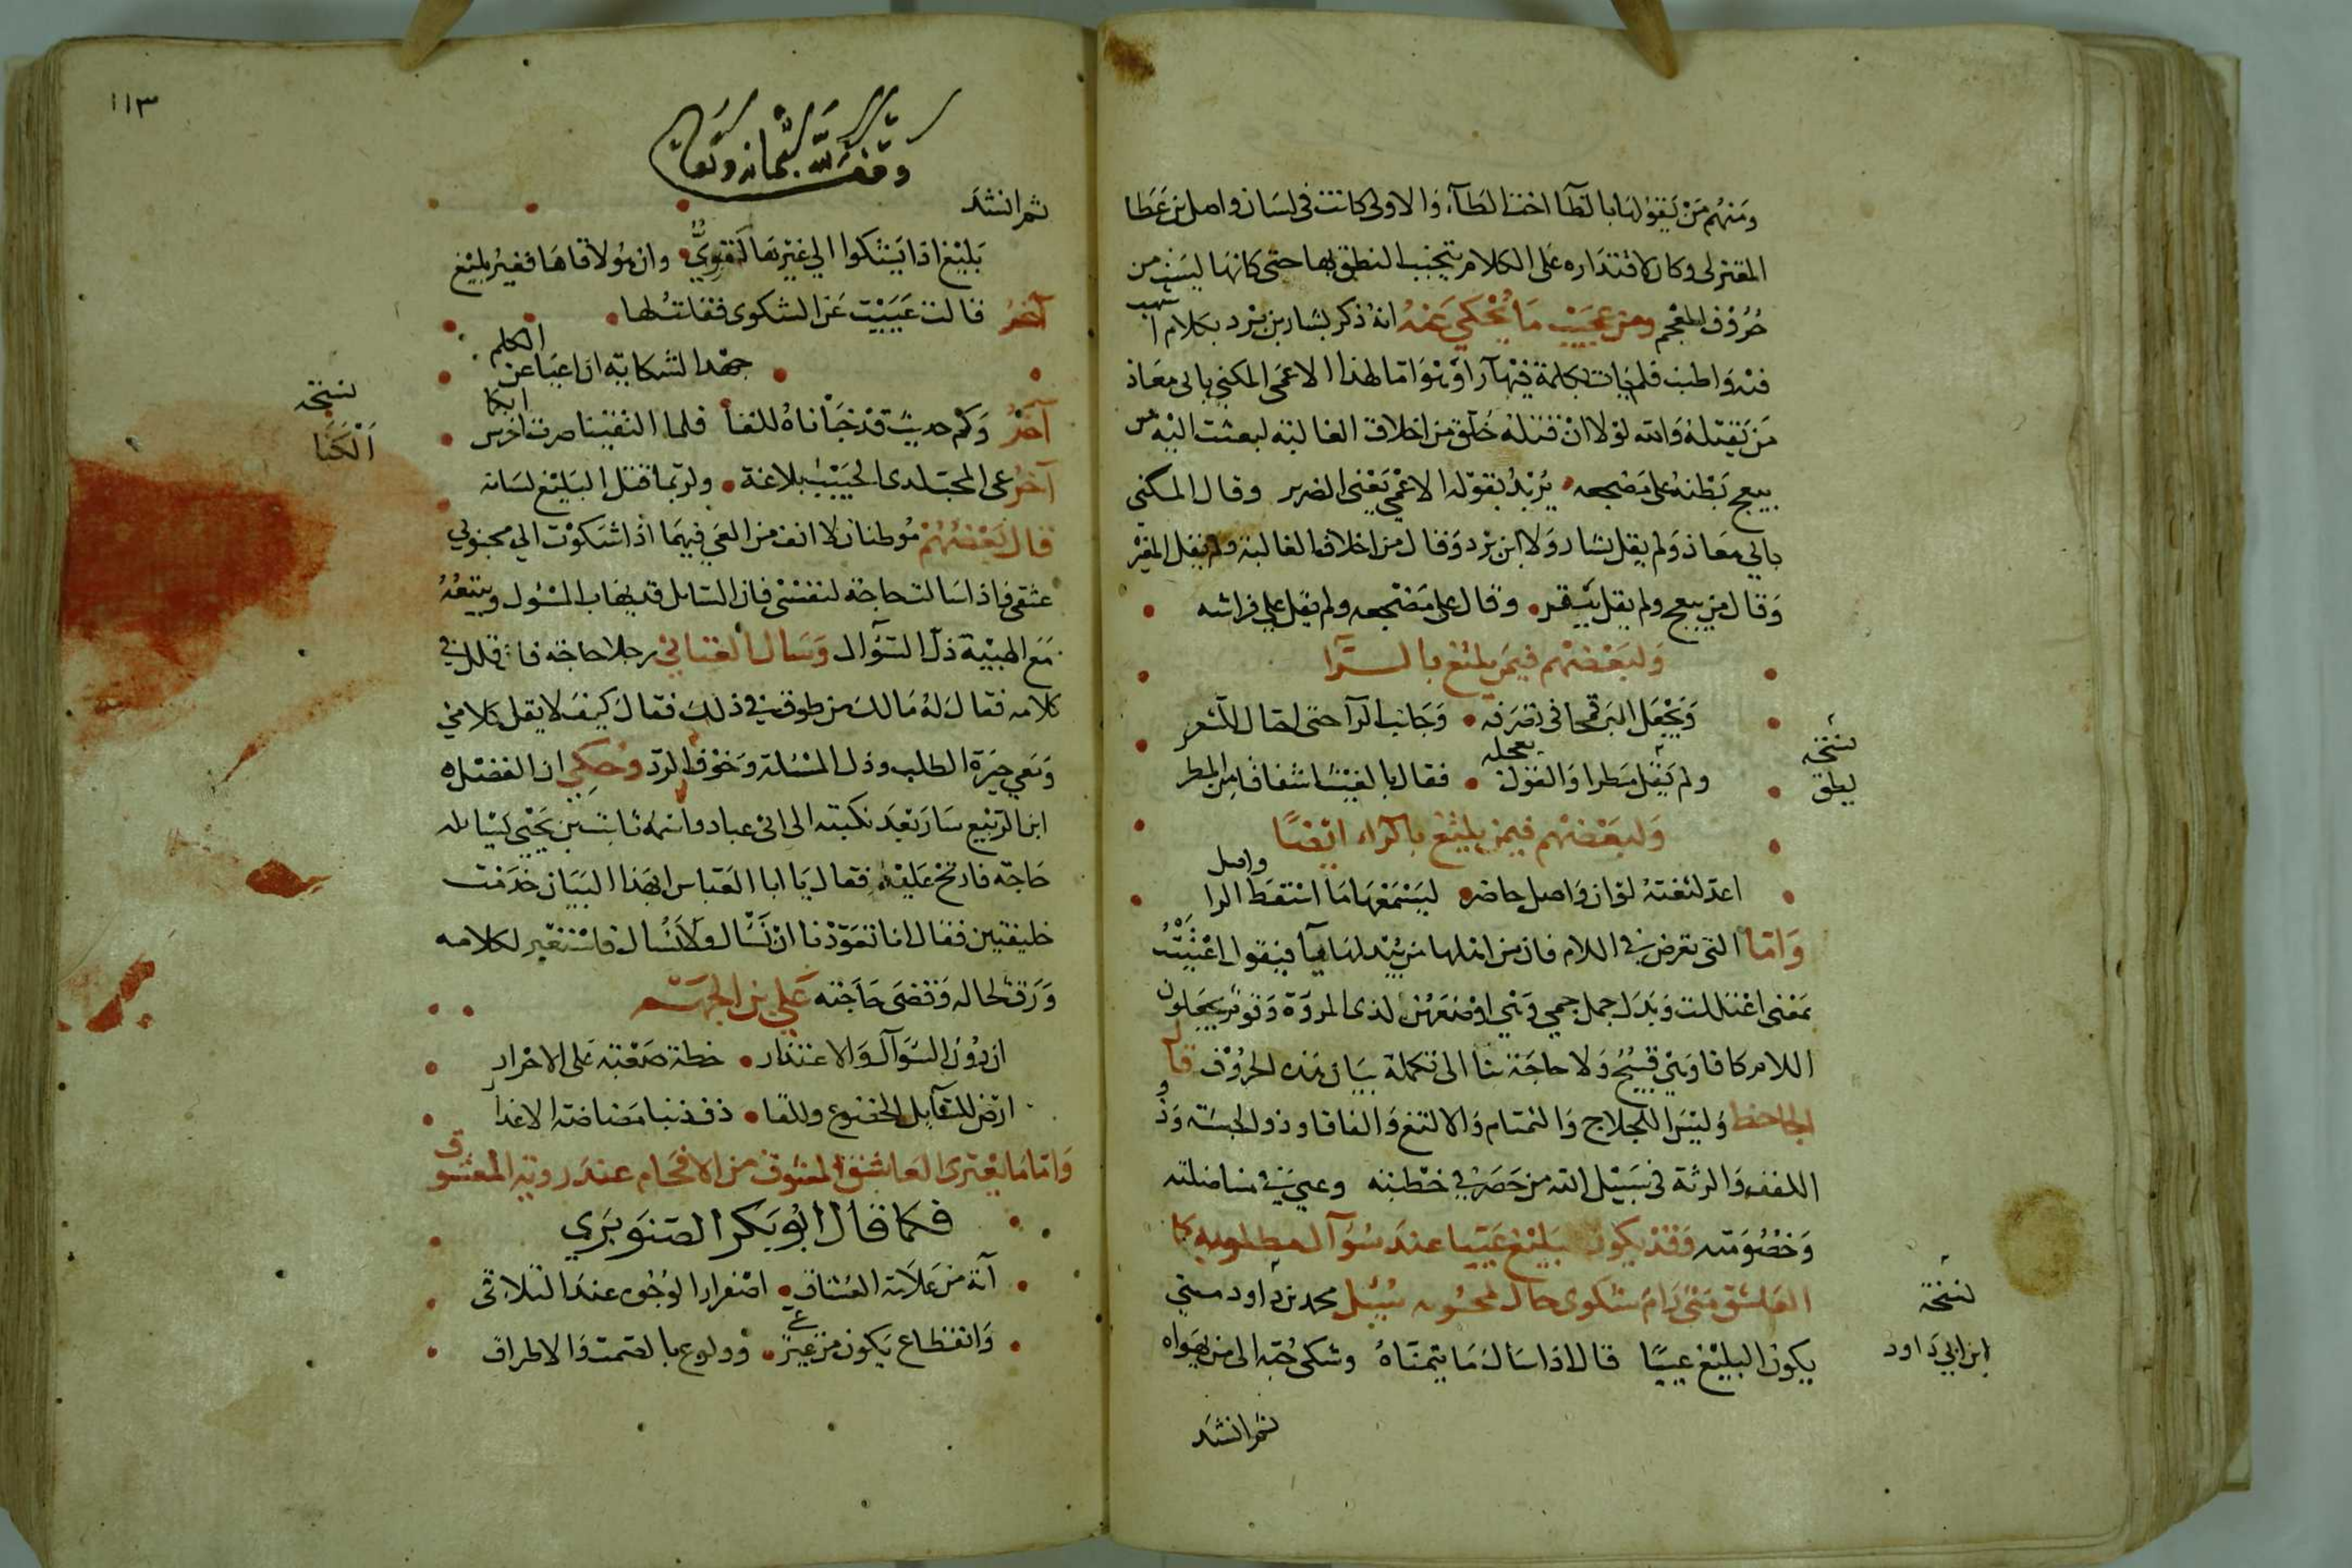 ومنهم من يقولها بالطا اخت الطآء والاولى كانت فى لسان واصل بن عطا
المعتزلى وكان لاقتداره على الكلام يتجنب النطق بها حتى كانها ليست من
حروف المعجم ومن عجيب ما يحكي عنه انه ذكر بشار بن برد بكلام اسهب
فيه واطنب فلم يات بكلمة فيها را وهو اما لهذا الاعمى المكني بابى معاذ
من يقتله والله لولا ان قتله خلق من اخلاق الغالية لبعثت اليه من
يبعج بطنه على مضجعه يريد بقوله الاعمى يعنى الضرير وقال المكني
بابي معاذ ولم يقل بشار ولا ابن برد وقال من اخلاق الغالية ولم يقل المغير
وقال من يبعج ولم يقل يبقر وقال على مضجعه ولم يقل على فراشه
ولبعضهم فيمن يلثغ بالرا
ويجعل البر قمحا في تصرفه وجانب الرآ حتى احتال للشعر
ولم يقل مطرا والقول يعجله فقال بالغيث اشفاقا من المطر
نسخة
يطق
ولبعضهم فيمن يلثغ بالرآء ايضا
اعد لثغته لو ان واصل حاضر ليسمعها ما اسقط الرا واصل
واما التى تعرض في اللام فان من اهلها من يبدلها يآ فيقول اعتييت
بمعنى اعتللت وبدل جمل جمي وهي اوضعهن لذى المروة وقوم يجعلون
اللام كافا وهي قبيح ولا حاجة بنا الى تكملة بيان هذه الحروف قال
الجاحظ وليس اللجلاج والتمتام والالثغ والفافا وذو الحبسة وذو
اللفف والرثة فى سبيل من حصر في خطبته وعيي في مناضلته
وخصومته وقد يكون بليغ عييا عند سؤآل مطلوبه كا
العاشق متى رام شكوى حال لمحبوبه سئل محمد بن داود متى
نسخة
ابن ابي داود
يكون البليغ عييا قال اذا سال ما يتمناه وشكى حبه الى من يهواه
ثم انشد
١١٣
وقف لله سبحانه وتعالى
ثم انشد
بليغ اذا يشكوا الي غيرها الهوى وان هو لاقاها فغير بليغ
آخر قالت عييت عن الشكوى فقلت لها
جهد الشكاية ان اعيا عن الكلم
نسخة
الكنا
آخر وكم حديث قد خبأناه للقا فلما التقينا صرت اخرس ابكما
آخر عي المحب لدى الحبيب بلاغة ولربما قتل البليغ لسانه
قال بعضهم موطنان لا انف من العي فيهما اذا شكوت الي محبوبي
عشقى فاذا سالت حاجة لنفسى فان السايل قد يهاب المسئول ويتبعه
مع الهيبة ذل السؤال وسال العتابي رجلا حاجة فاقلل في
كلامه فقال له مالك من طوق في ذلك فقال كيف لا يقل كلامي
ومعي حيرة الطلب وذل المسئلة وخوف الرد وحكي ان الفضل
ابن الربيع سار بعد نكبته الى ابى عباد واسمه ثابت بن يحيى يسايله
حاجة فارتج عليه فقال يا ابا العباس ابهذا البيان خدمت
خليفتين فقال انا تعودنا ان نسال ولا نسال فاستغير لكلامه
ورق لحاله وقضى حاجته علي بن الجهم
ان دون السؤآل والاعتذار خطة صعبة على الاحرار
ارض للسآيل الخضوع وللقا ذف ذنبا مضاضة الاعذار
واما ما يعترى العاشق المعشوق من الافحام عند روية المعشوق
فكما قال ابو بكر الصنوبري
آية من علامة العشاق اصفرار الوجوه عند التلاقى
وانقطاع يكون من غير عي وولوع بالصمت والاطراق